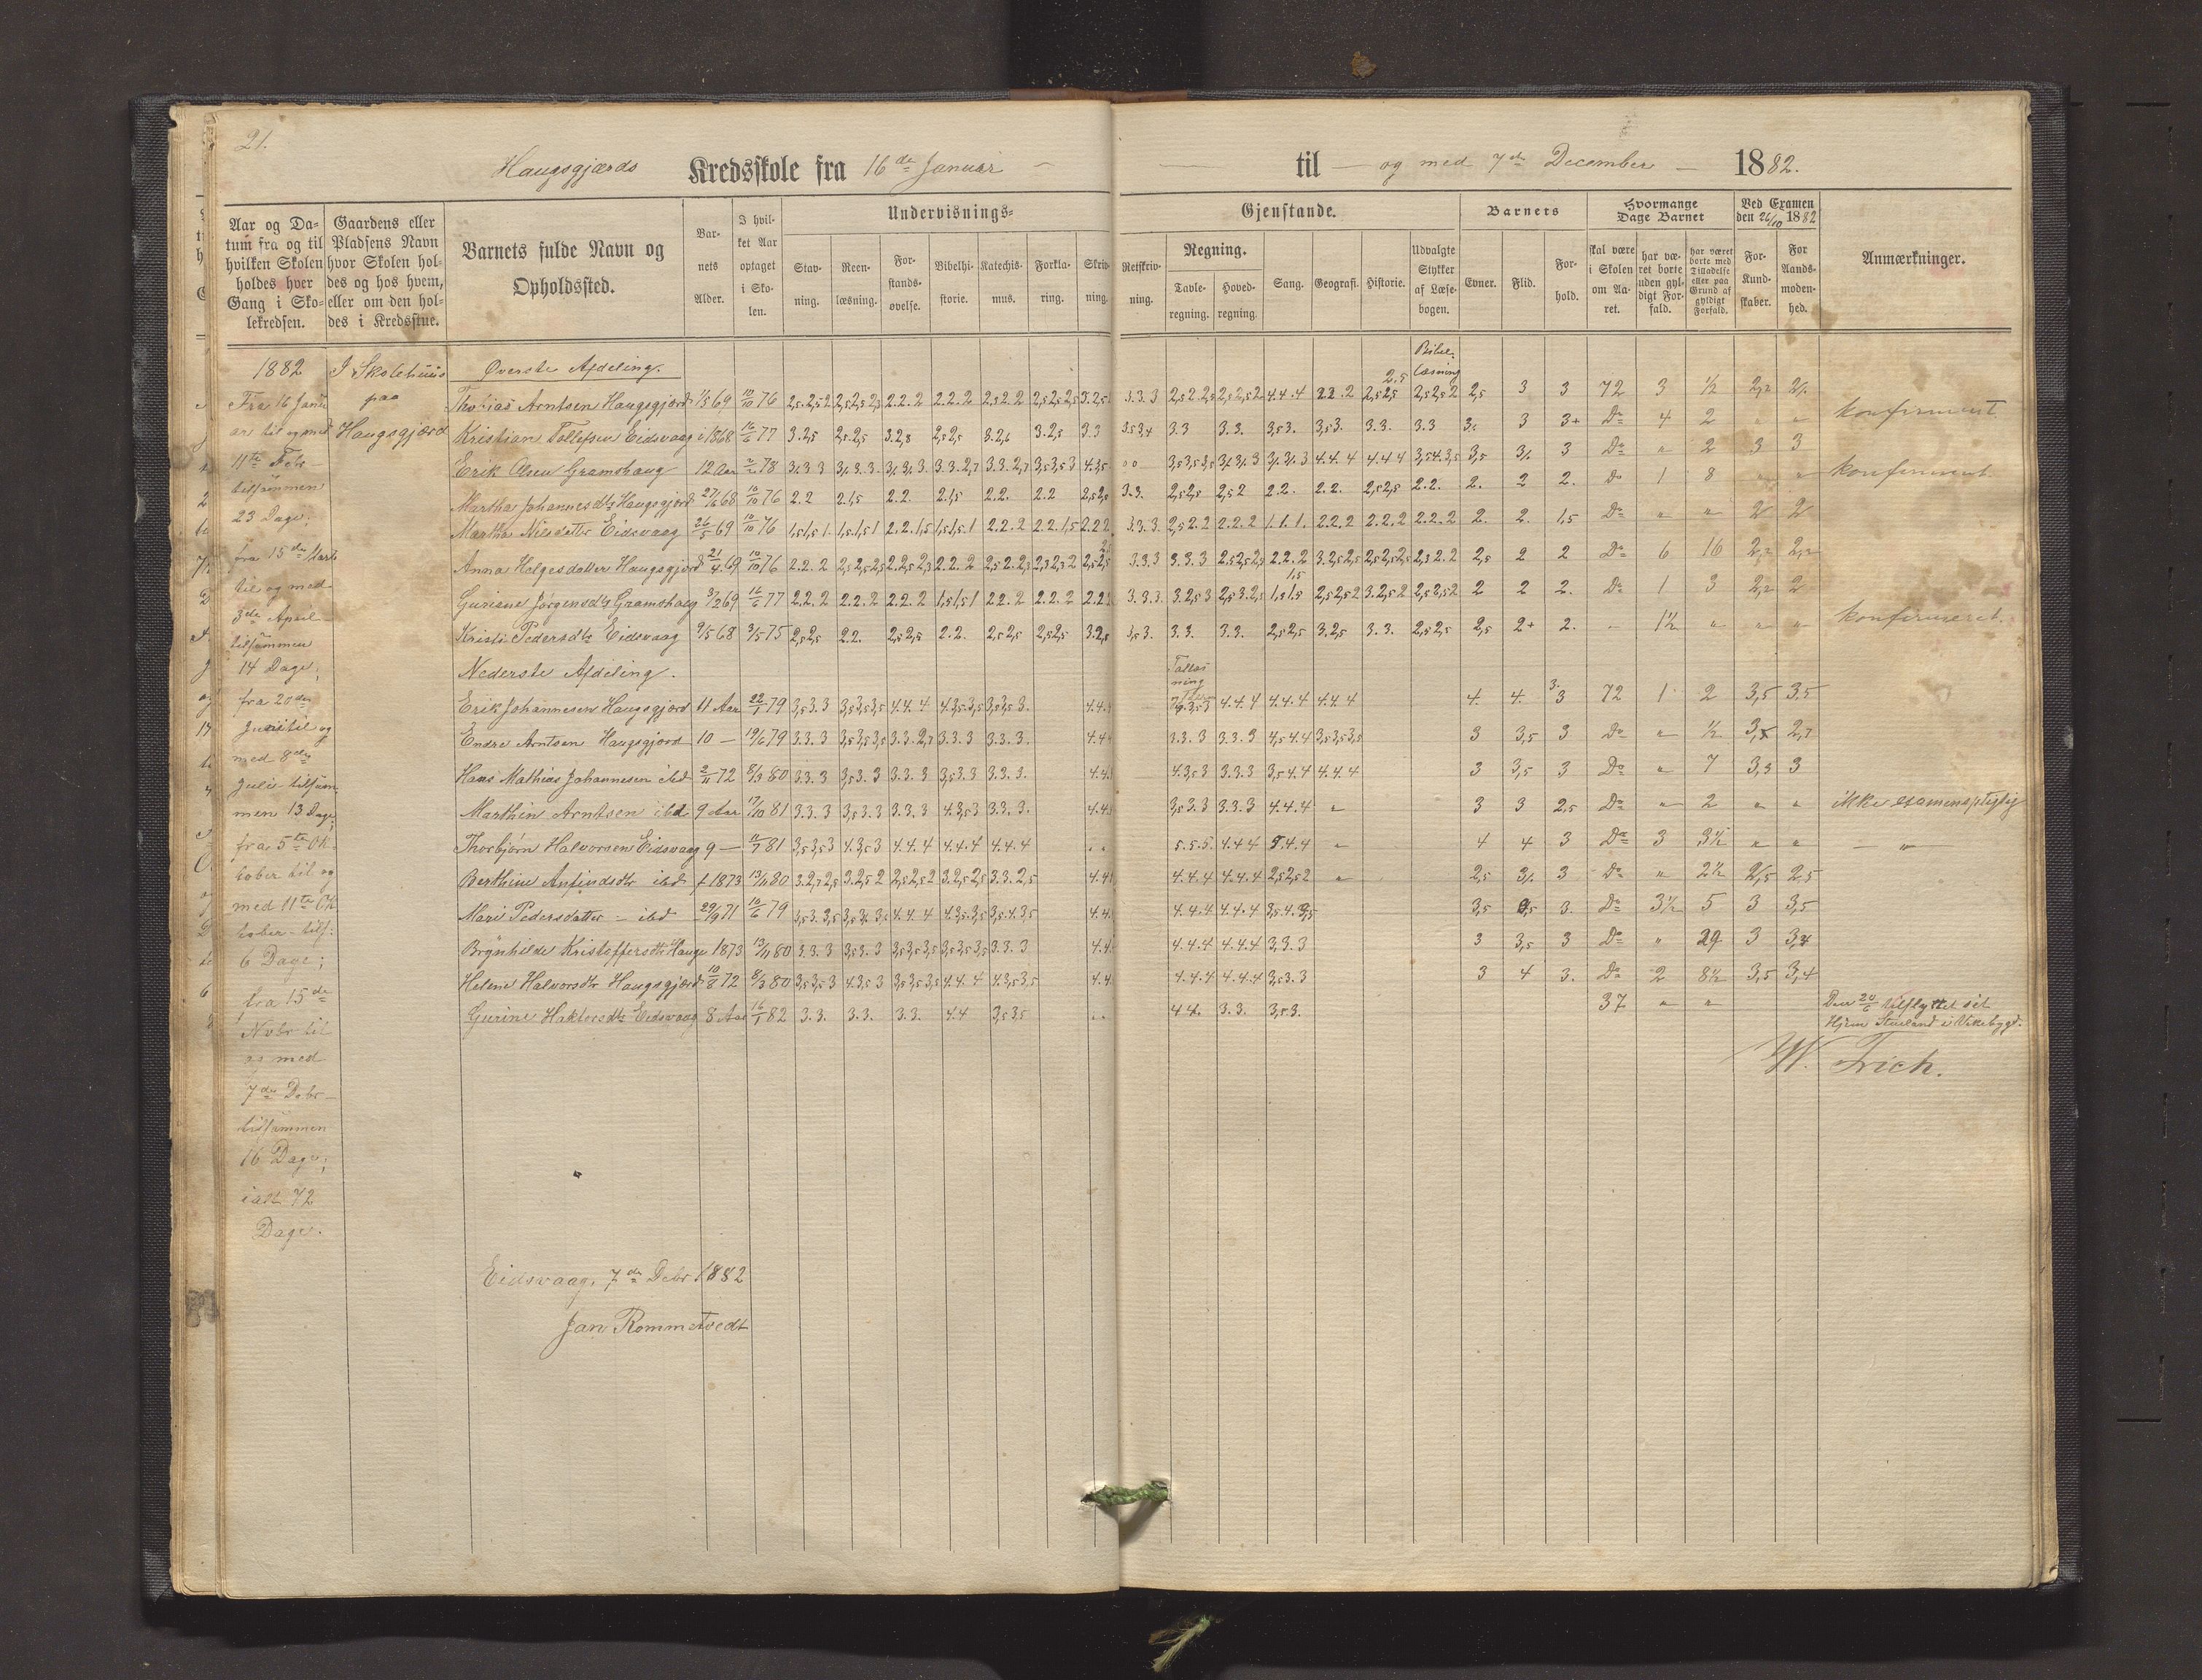 21.
Haugsgjærds Kredsskole fra 16de Januar — til — og med 7de December — 1882.
Aar og Da-
tum fra og til
hvilken Skolen
holdes hver
Gang i Sko-
lekredsen.
Gaardens eller
Pladsens Navn
hvor Skolen hol-
des og hos hvem,
eller om den hol-
des i Kredsstue.
Barnets fulde Navn og
Opholdssted.
Bar-
nets
Alder.
I hvil-
ket Aar
optaget
i Sko-
len.
Undervisnings-
Stav-
ning.
Reen-
læsning.
For-
stands-
øvelse.
Bibelhi-
storie.
Katechis-
mus.
Forkla-
ring.
Skriv-
ning.
Gjenstande.
Retskriv-
ning.
Regning.
Tavle-
regning.
Hoved-
regning.
Sang.
Geografi.
Historie.
Udvalgte
Stykker
af Læse-
bogen.
Barnets
Evner.
Flid.
For-
hold.
Hvormange
Dage Barnet
skal være
i Skolen
om Aa-
ret.
har væ-
ret borte
uden gyl-
digt For-
fald.
har været
borte med
Tilladelse
eller paa
Grund af
gyldigt
Forfald.
Ved Examen
den 26/10 1882
For-
Kund-
skaber.
For
Aands-
moden-
hed.
Anmærkninger.
1882
Fra 16 Janu
ar til og med
11te Febr
tilsammen
23 Dage;
fra 15de Marts
til og med
3de April
tilsammen
14 Dage;
fra 20de
Juni til og
med 8de
Juli tilsam
men 13 Dage;
fra 5te Ok
tober til og
med 11te Ok
tober tils:
6 Dage;
fra 15de
Novbr til
og med
7de Debr
tilsammen
16 Dage;
ialt 72
Dage.
I Skolehuus
paa
Haugsgjærd
Øverste Afdeling.
Bibel.
læsning
Thobias Arntsen Haugsgjerd 1/5 69 10/10 76 2,5.2,5 2 2,5 2,5 2,5 2.2.2 2.2.2 2,5 2.2 2,5 2,5 2,5 3.3.3 2,5 2.2,5 2,5 2,5 2 4.4.4 2 2.2 2,5 2,5 2,5 2,5 2 2,5 3 3 72 3 1/2
Kristian Tollefsen Eidsvaag i 1868 16/6 77 3.2,5 2,5.2,5 3.2,8 2,5 2,5 3.2,6 3.2,5 3.3 3,5 3,4 3.3 3.3. 3,5 3. 3,5 3. 3.3. 3.3 3. 3 3+ Do 4 2 " " konfirment
Erik Olsen Gramshaug 12 Aar 2/2 78 3.3.2,7 3.3.2,7 3,5 3,5 3 3,5 3,5 3,5 4.4.4 4.4.4 3,5 4.3,5 3,5 3 Do " 2 3 3
Martha Johannesdtr Haugsgjerd 27/6 68 10/10 76 2.2 2.1,5 2.2. 2.1,5 2.2. 2.2 2,5 2,5 3.3. 2,5 2,5 2,5 2 2.2. 2.2. 2,5 2,5 2.2. 2. 2 2. Do 1 8 konfirment
Martha Nilsdatter Eidsvaag 26/5 69 10/10 76 1,5 1,5 1. 1,5.1,5 1 2.2.1,5 1,5 1,5 1 2.2.2 2.2.1,5 2.2.2 3.3.3. 2,5 2.2 2.2.2 1.1.1. 2.2.2 2.2.2 2.2.2 2. 2. 1,5 Do " " 2 2
Anna Helgesdatter Haugsgjerd 21/4 69 10/10 76 2.2.2 2,5 2,5 2,5 2.2,5 2,3 2.2.2 2,5 2.2,3 2,3 2,3 2 3.3.3 3.3.3 2,5 2,5 2,5 2.2.2 3.2,5 2,5 2,5 2,5 2,5 2,3 2.2 2,5 2 2 Do 6 16 2,2 2,2
Guriane Jørgensdtr Gramshaug 3/2 69 16/6 77 2.2.2 2.2.2 2.2.2 1,5 1,5 1 2.2.2 2.2.2 3.3.3. 3.2,5 3 2,5 3.2,5 2,5 2,5 2 3.2,5 2 2 2 2. Do 1 3 2,2 2
Kristi Pedersdtr Eidsvaag 9/5 68 3/5 75 2,5 2,5 2.2. 2,5 2,5 2.2. 2,5 2,5 2,5 2,5 3.2,5 3,5 3. 3.3. 3.3. 2,5 2,5 3.2,5 3.3. 2,5 2,5 2,5 2+ 2. - 1 1/2 " " " konfirmeret.
Nederste Afdeling.
Erik Johannesen Haugsgjerd 11 Aar 22/1 79 3,5 3.3 3,5 3,5 3,5 4.4.4 4.3,5.3,5 3,5 3,5 3. 4.4. 4.4.4 4.4.4 4.4.4 4. 4. 3 72 1 2 3,5 3.5
Endre Arntsen Haugsgjerd 10 — 19/6 79 3.3.3 3,5 3,5 3,5 3.3.2,7 3.3.3 3.3.3. 4.4 3.3.3 3.3.3 4,5 4.4 3,5 3,5 3,5 3 3,5 3 Do " 1/2 2,7
Hans Mathias Johannesen ibd 2/11 72 8/3 80 3.3.3 3,5 3.3 3.3.3 3,5 3.3 3.3.3. 4.4. 4.3,5 3 3.3.3 3,5 4.4 4.4.4 3 3,5 3 Do " 7 3,3 3
Marthin Arntsen ibd 9 Aar 17/10 81 3.3.3 3,5 3.3 3.3.3 4.3,5 3 3.3.3. 4.4. 3,5 3.3 3.3.3 4.4.4 " 3 3 2,5 Do " 2 " " ikke examenspligtig
Thorbjørn Halvorsen Eidsvaag 9 — 11/7 81 3,5 3,5 3 4.3,5 3 4.4.4 4.4.4 4.4.4 5.5.5. 4.4.4 5.4.4 " 4 4 3 Do 3 3 1/2 " " — "
Berthine Anfindsdtr ibd f 1873 13/11 80 3.2,7 2,5 3.2,5 2 2,5 2,5 2 3.2,5 2,5 3.3.2,5 4.4 4.4.4 4.4.4 2,5 2,5 2 " 2,5 3 Do " 2 1/2 2,5 2.5
Mari Pedersdatter - ibd 29/9 71 10/6 79 4.4.4 4.3,5.3,5 3,5.4.3,5 4.4. 4.4.4 4.4.4 3,5 3. Do 3 1/2 5 3 3,5
Brynhilde Kristoffersdtr Hauge 1873 13/11 80 3.3.3 3,5 3.3 3,5 3,5 3,5 3,5 3,5 3,5 3.3.3 4.4. 4.4.4 4.4.4 3.3.3 3 3,5 3 Do " 29 3 3,4
Helene Halvorsdtr Haugsgjerd 10/8 72 8/3 80 3,5 3,5 3 4.3,5 3 3,5 3,5 3,5 4.4.4 4.3,5 3,5 4.4. 4.4.4 4.4.4 3,5 3.3 3 4 3. Do 2 8 1/2 3,5 3,4
Gurine Haktorsdtr Eidsvaag 8 Aar 16/1 82 3.3. 3.3. 3.3. 4.4 3,5 3,5 4 4. 3.3. 3,5 3. 37 " " Den 20/6 udflyttet sit
Hjem Stueland i Vikebygd.
W. Frich.
Eidsvaag, 7de Debr 1882
Jan Rommetvedt